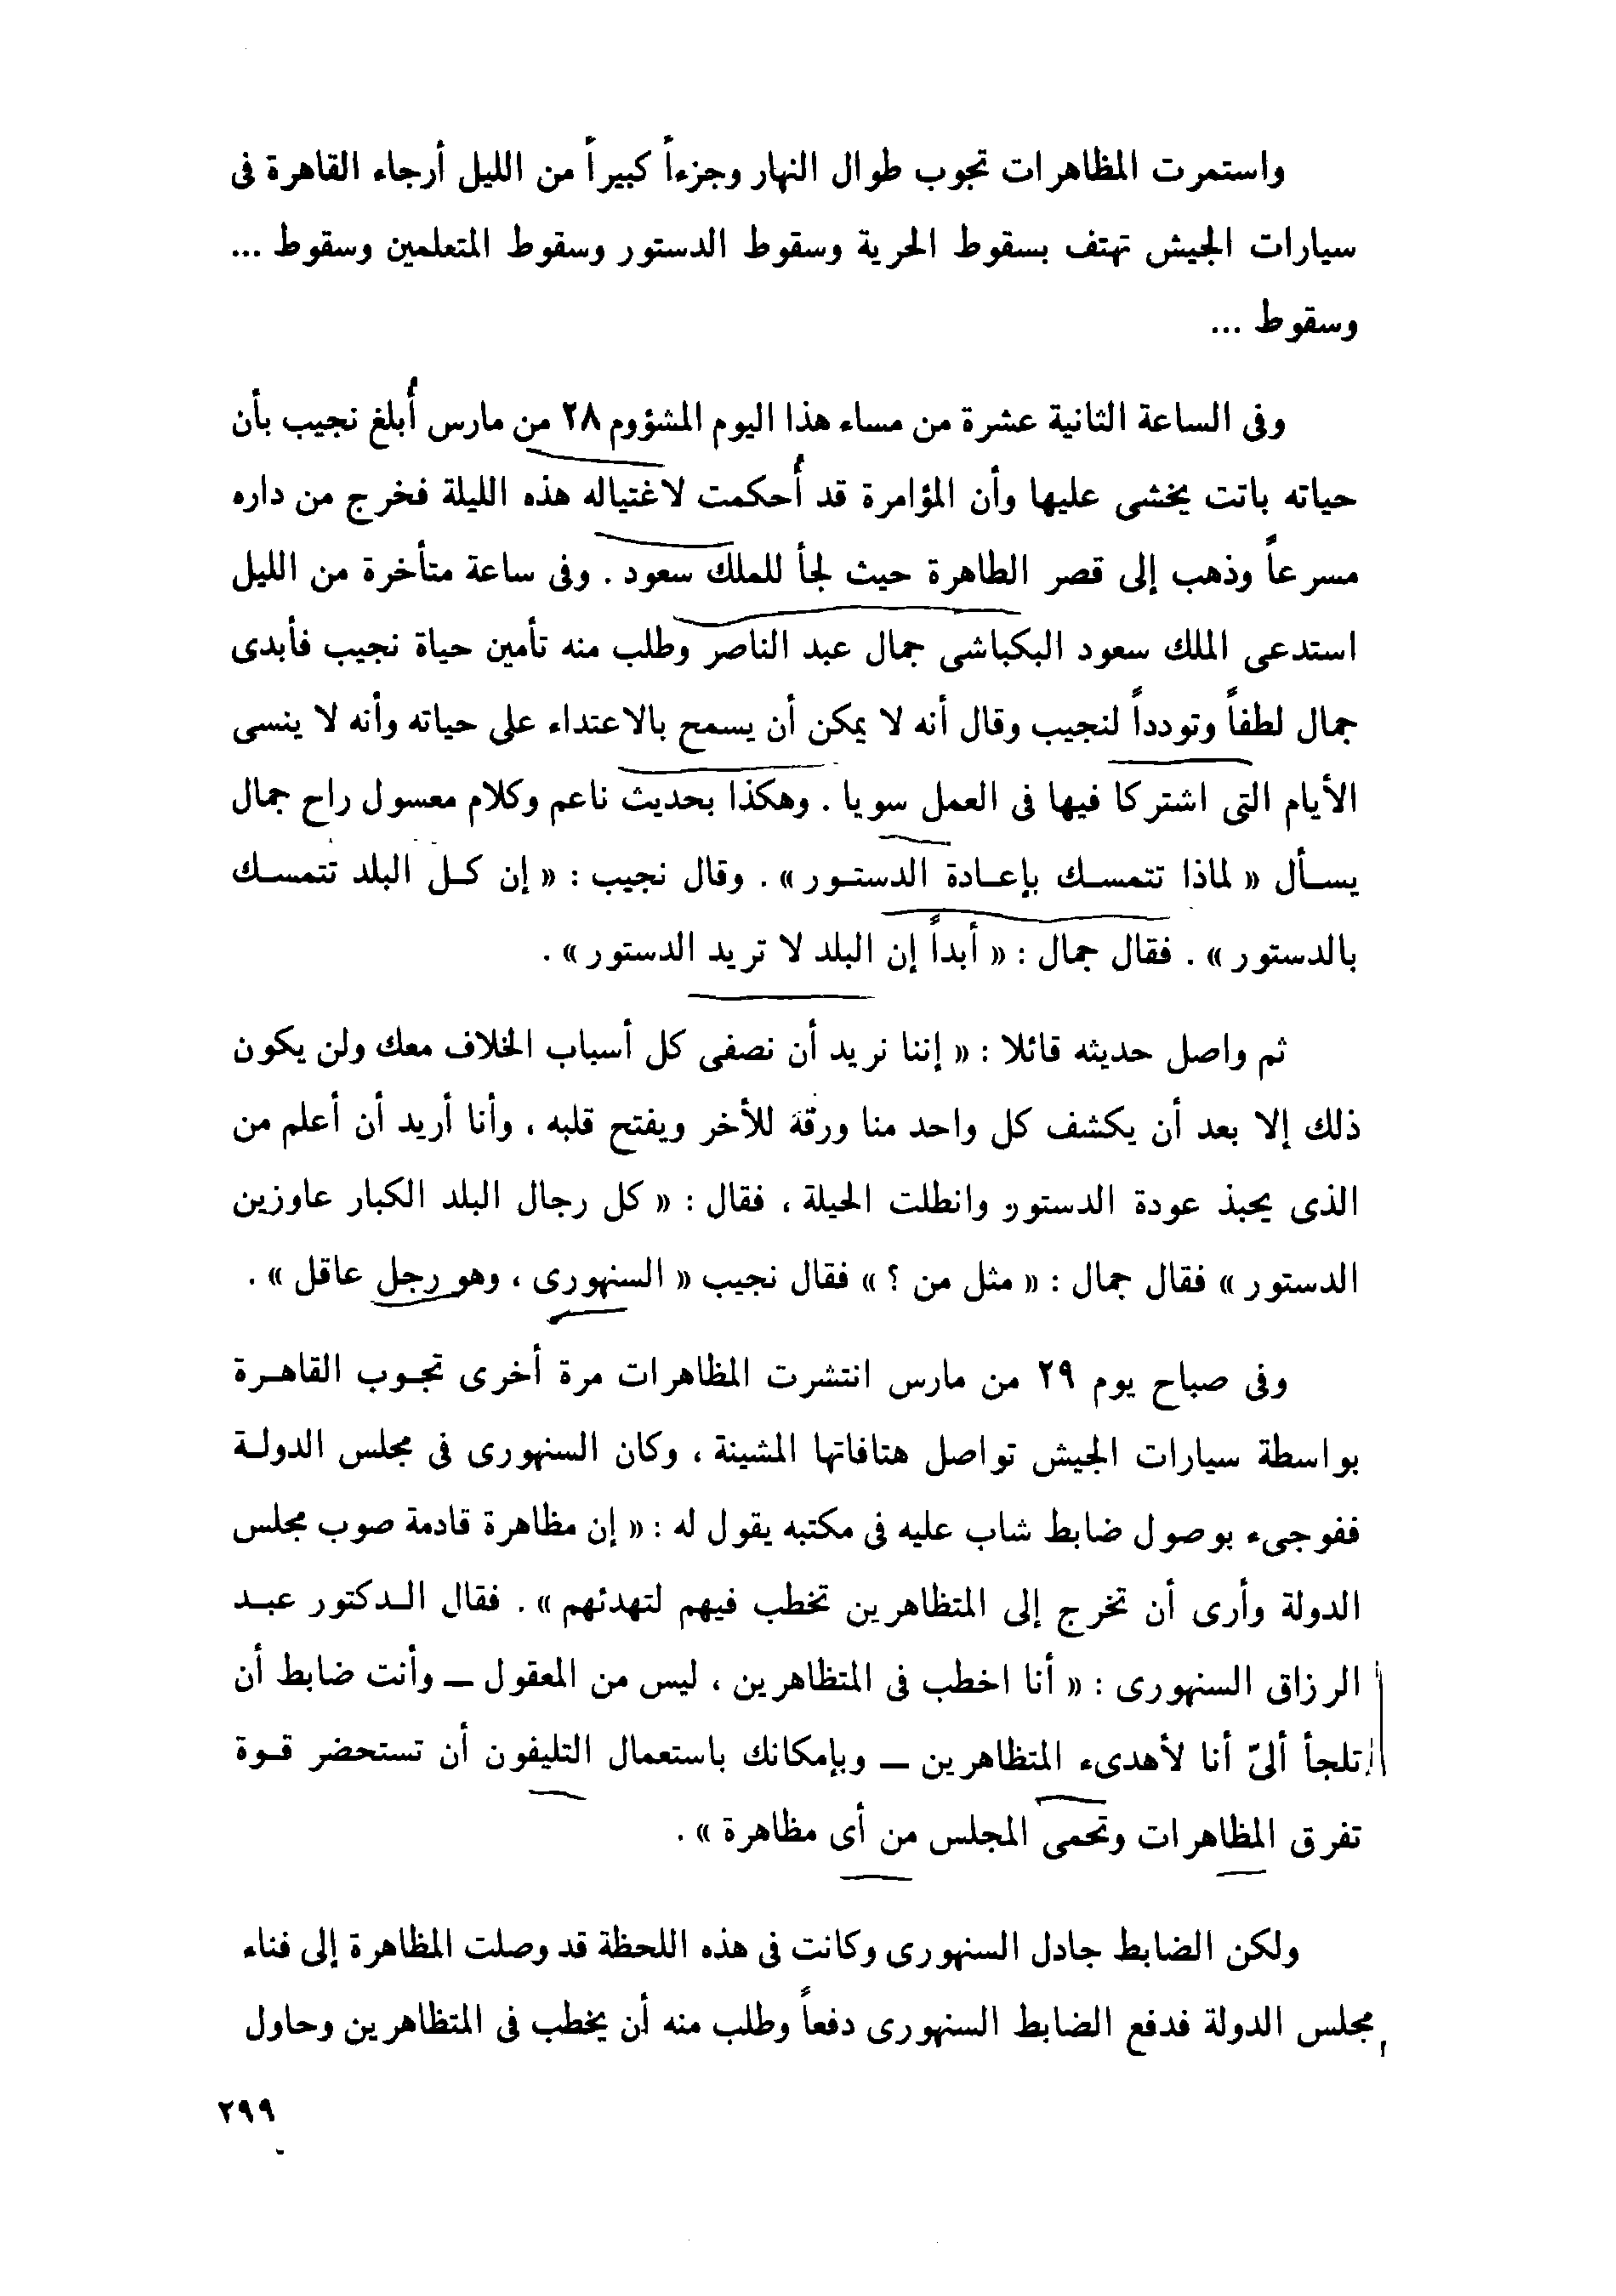 واستمرت المظاهرات تجوب طوال النهار وجزءاً كبيراً من الليل أرجاء القاهرة فى
سيارات الجيش تهتف بسقوط الحرية وسقوط الدستور وسقوط المتعلمين وسقوط ...
وسقوط ...
وفى الساعة الثانية عشرة من مساء هذا اليوم المشؤوم ٢٨ من مارس أُبلغ نجيب بأن
حياته باتت يخشى عليها وأن المؤامرة قد أُحكمت لاغتياله هذه الليلة فخرج من داره
مسرعاً وذهب إلى قصر الطاهرة حيث لجأ للملك سعود . وفى ساعة متأخرة من الليل
استدعى الملك سعود البكباشى جمال عبد الناصر وطلب منه تأمين حياة نجيب فأبدى
جمال لطفاً وتودداً لنجيب وقال أنه لا يمكن أن يسمح بالاعتداء على حياته وأنه لا ينسى
الأيام التى اشتركا فيها فى العمل سويا . وهكذا بحديث ناعم وكلام معسول راح جمال
يسأل « لماذا تتمسك بإعادة الدستور » . وقال نجيب : « إن كل البلد تتمسك
بالدستور » . فقال جمال : « أبداً إن البلد لا تريد الدستور » .
ثم واصل حديثه قائلا : « إننا نريد أن نصفى كل أسباب الخلاف معك ولن يكون
ذلك إلا بعد أن يكشف كل واحد منا ورقة للأخر ويفتح قلبه ، وأنا أريد أن أعلم من
الذى يحبذ عودة الدستور وانطلت الحيلة ، فقال : « كل رجال البلد الكبار عاوزين
الدستور » فقال جمال : « مثل من ؟ » فقال نجيب « السنهورى ، وهو رجل عاقل » .
وفى صباح يوم ٢٩ من مارس انتشرت المظاهرات مرة أخرى تجوب القاهرة
بواسطة سيارات الجيش تواصل هتافاتها المشينة ، وكان السنهورى فى مجلس الدولة
ففوجىء بوصول ضابط شاب عليه فى مكتبه يقول له : « إن مظاهرة قادمة صوب مجلس
الدولة وأرى أن تخرج إلى المتظاهرين تخطب فيهم لتهدئهم » . فقال الدكتور عبد
الرزاق السنهورى : « أنا اخطب فى المتظاهرين ، ليس من المعقول ــ وأنت ضابط أن
تلجأ ألىّ أنا لأهدىء المتظاهرين ــ وبإمكانك باستعمال التليفون أن تستحضر قوة
تفرق المظاهرات وتحمى المجلس من أى مظاهرة » .
ولكن الضابط جادل السنهورى وكانت فى هذه اللحظة قد وصلت المظاهرة إلى فناء
مجلس الدولة فدفع الضابط السنهورى دفعاً وطلب منه أن يخطب فى المتظاهرين وحاول
٢٩٩